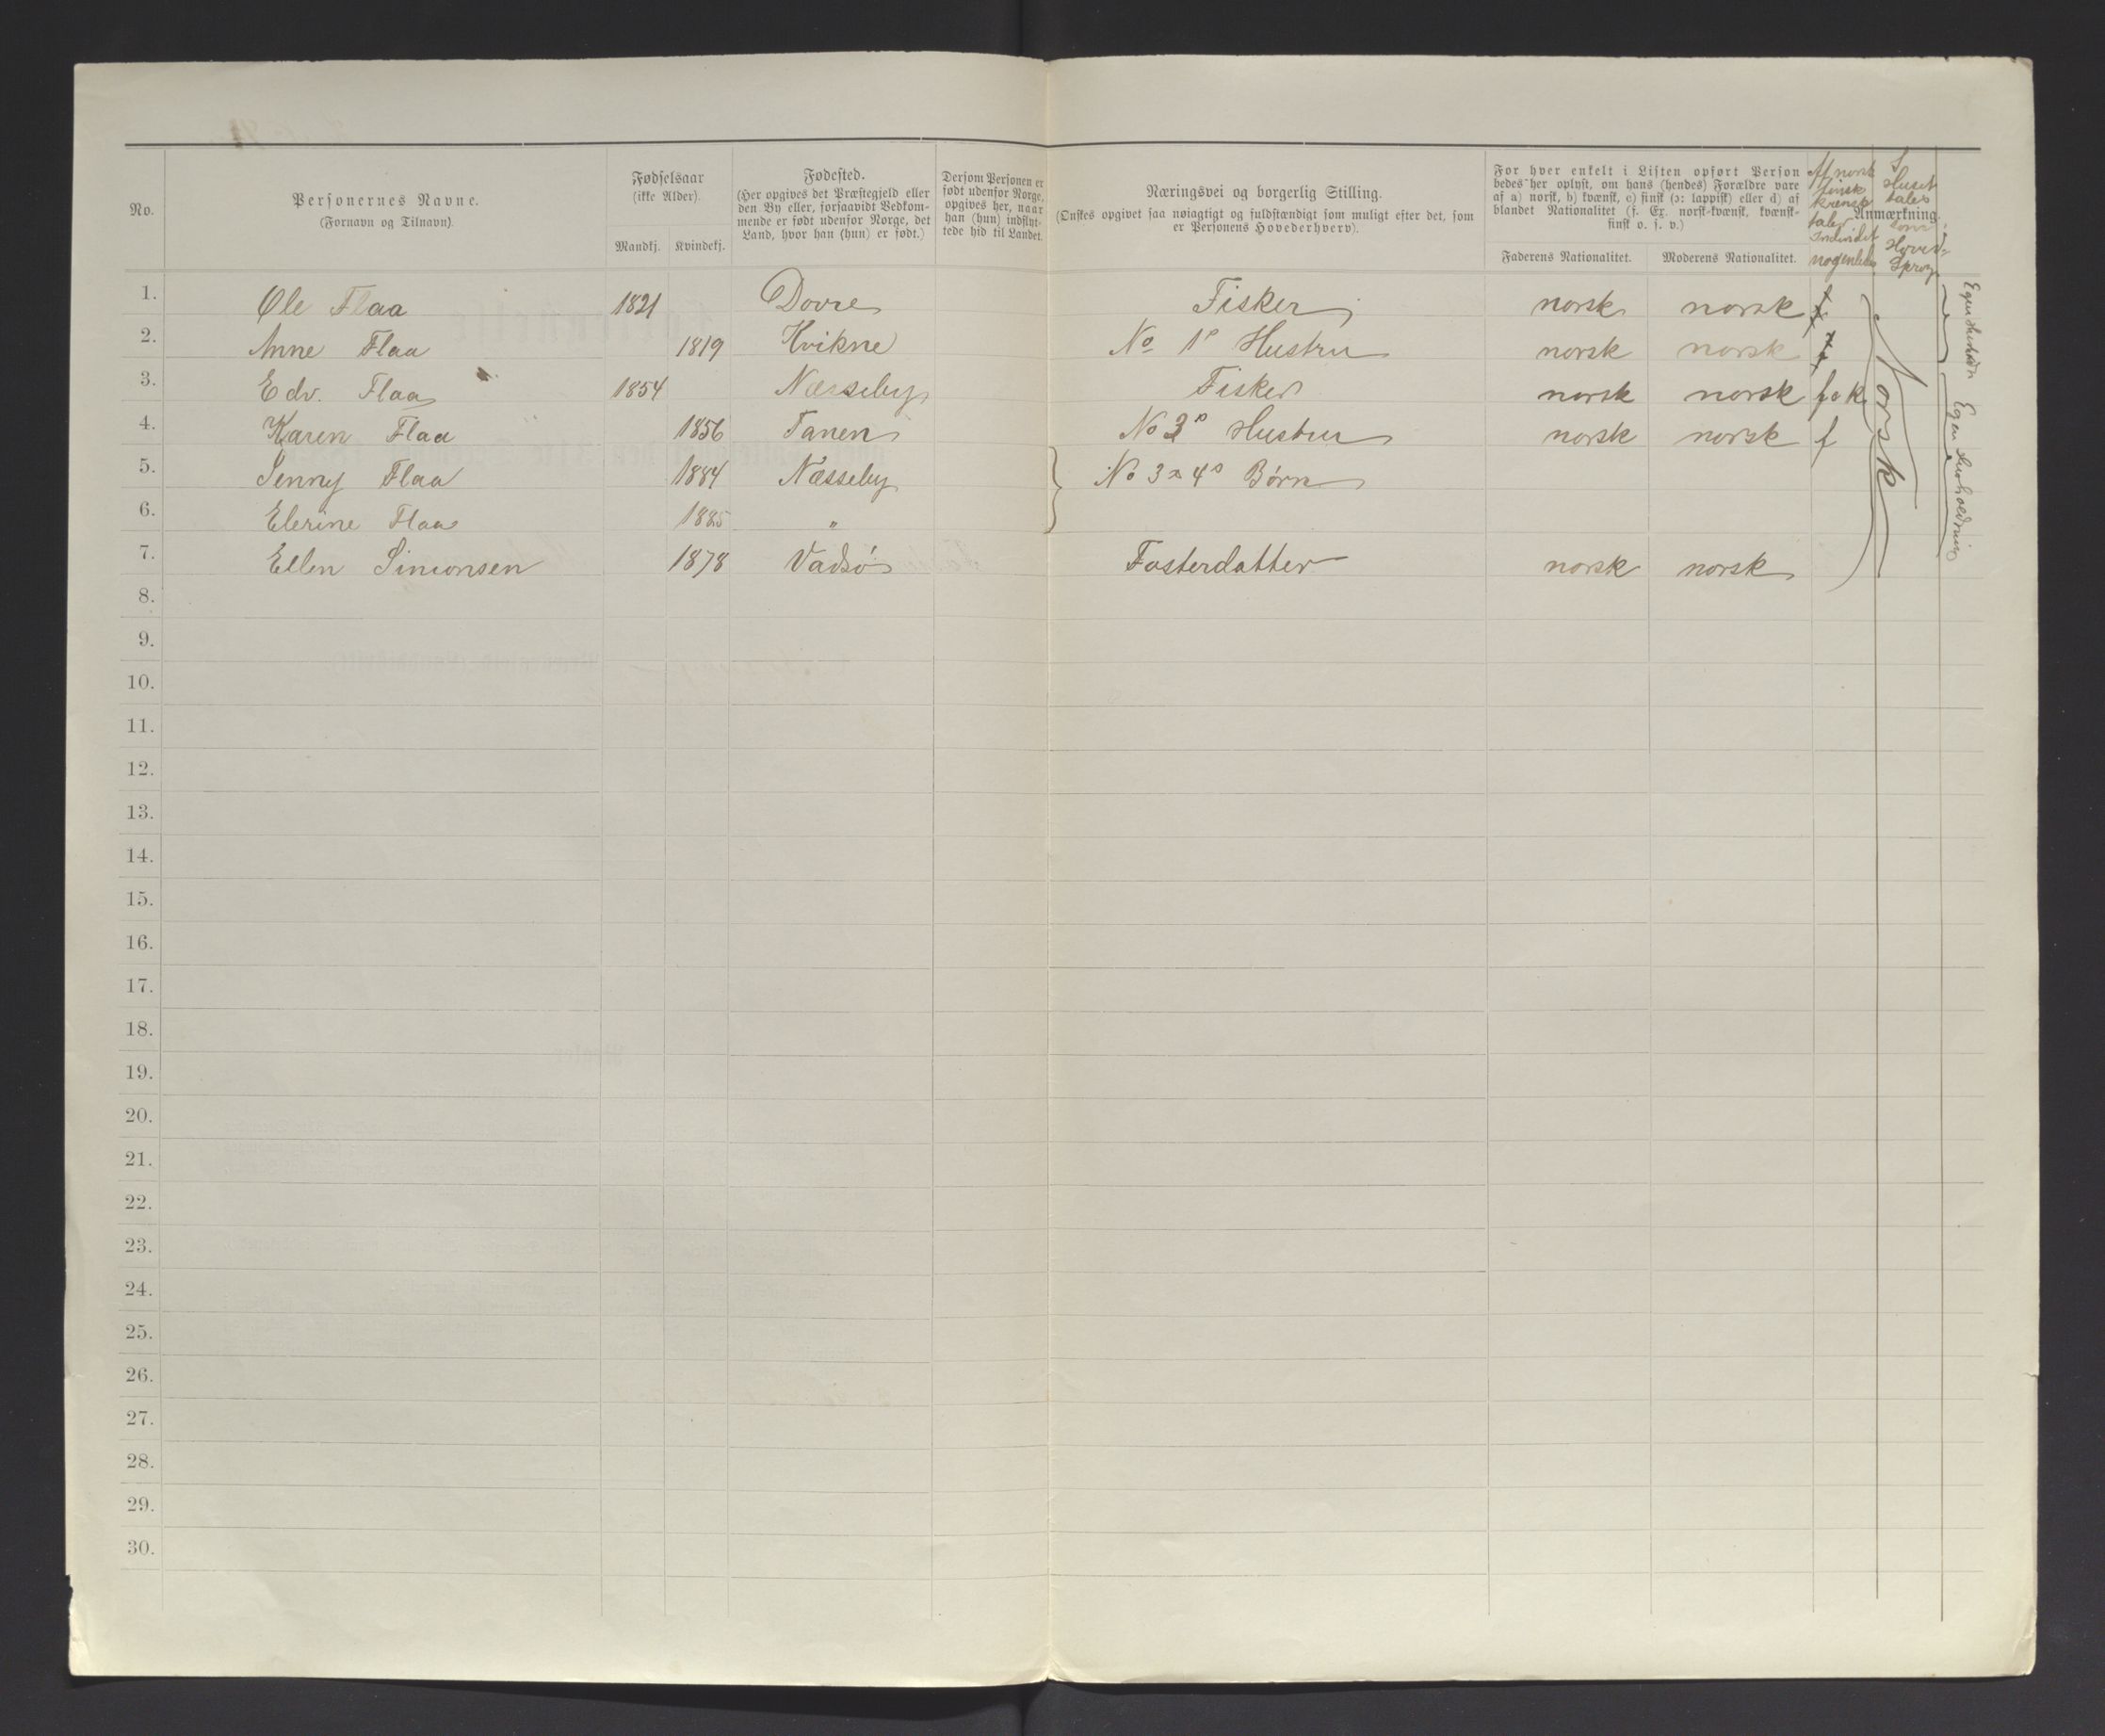 No.
Personernes Navne.
(Fornavn og Tilnavn).
Fødselsaar
(ikke Alder).
Mandkj. Kvindekj.
Fødested.
(Her opgives det Præstegjeld eller
den By eller, forsaavidt Vedkom-
mende er født udenfor Norge, det
Land, hvor han (hun) er født.)
Dersom Personen er
født udenfor Norge,
opgives her, naar
han (hun) indflyt-
tede hid til Landet.
Næringsvei og borgerlig Stilling.
(Ønskes opgivet saa nøiagtigt og fuldstændigt som muligt efter det, som
er Personens Hovederhverv).
For hver enkelt i Listen opført Person
bedes her oplyst, om hans (hendes) Forældre vare
af a) norsk, b) kvænsk, c) finsk (ɔ: lappisk) eller d) af
blandet Nationalitet (f. Ex. norsk-kvænsk, kvænsk-
finsk o. s. v.)
Faderens Nationalitet. Moderens Nationalitet.
Af norsk
finsk
kvænsk
taler
Individet
nogenledes
I
Huset
tales
som
Hoved-
Sprog
Anmærkning.
1. Ole Flaa 1821 Dovre Fisker norsk norsk f
2. Anne Flaa 1819 Kvikne No 1s Hustru norsk norsk
3. Edv. Flaa 1854 Næsseby Fisker norsk norsk f o k
4. Karen Flaa 1856 Tanen No 3s Hustru norsk norsk f
5. Jenny Flaa 1884 Næsseby No 3 & 4s Børn
6. Elerine Flaa 1885 "
7. Ellen Simonsen 1878 Vadsø Fosterdatter norsk norsk
Norsk
Egen Husholdn
Egen Husholdning
8.
9.
10.
11.
12.
13.
14.
15.
16.
17.
18.
19.
20.
21.
22.
23.
24.
25.
26.
27.
28.
29.
30.